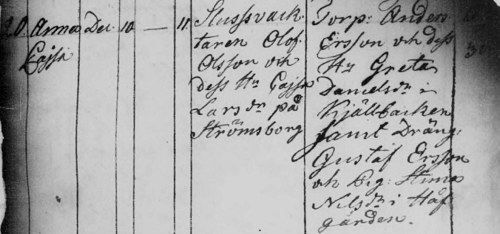 20. Anna Dec. 10 — 11
Cajsa
Slussvack
taren Olof
Olsson och
dess Hu Cajsa
Lars dr på
Strömsborg
Torp: Anders
Ersson och dess
Hu Greta
Daniels dr i
Kjällbacken
samt Dräng:
Gustaf Ersson
och Pig: Stina
Nils dr i Håf
gården.